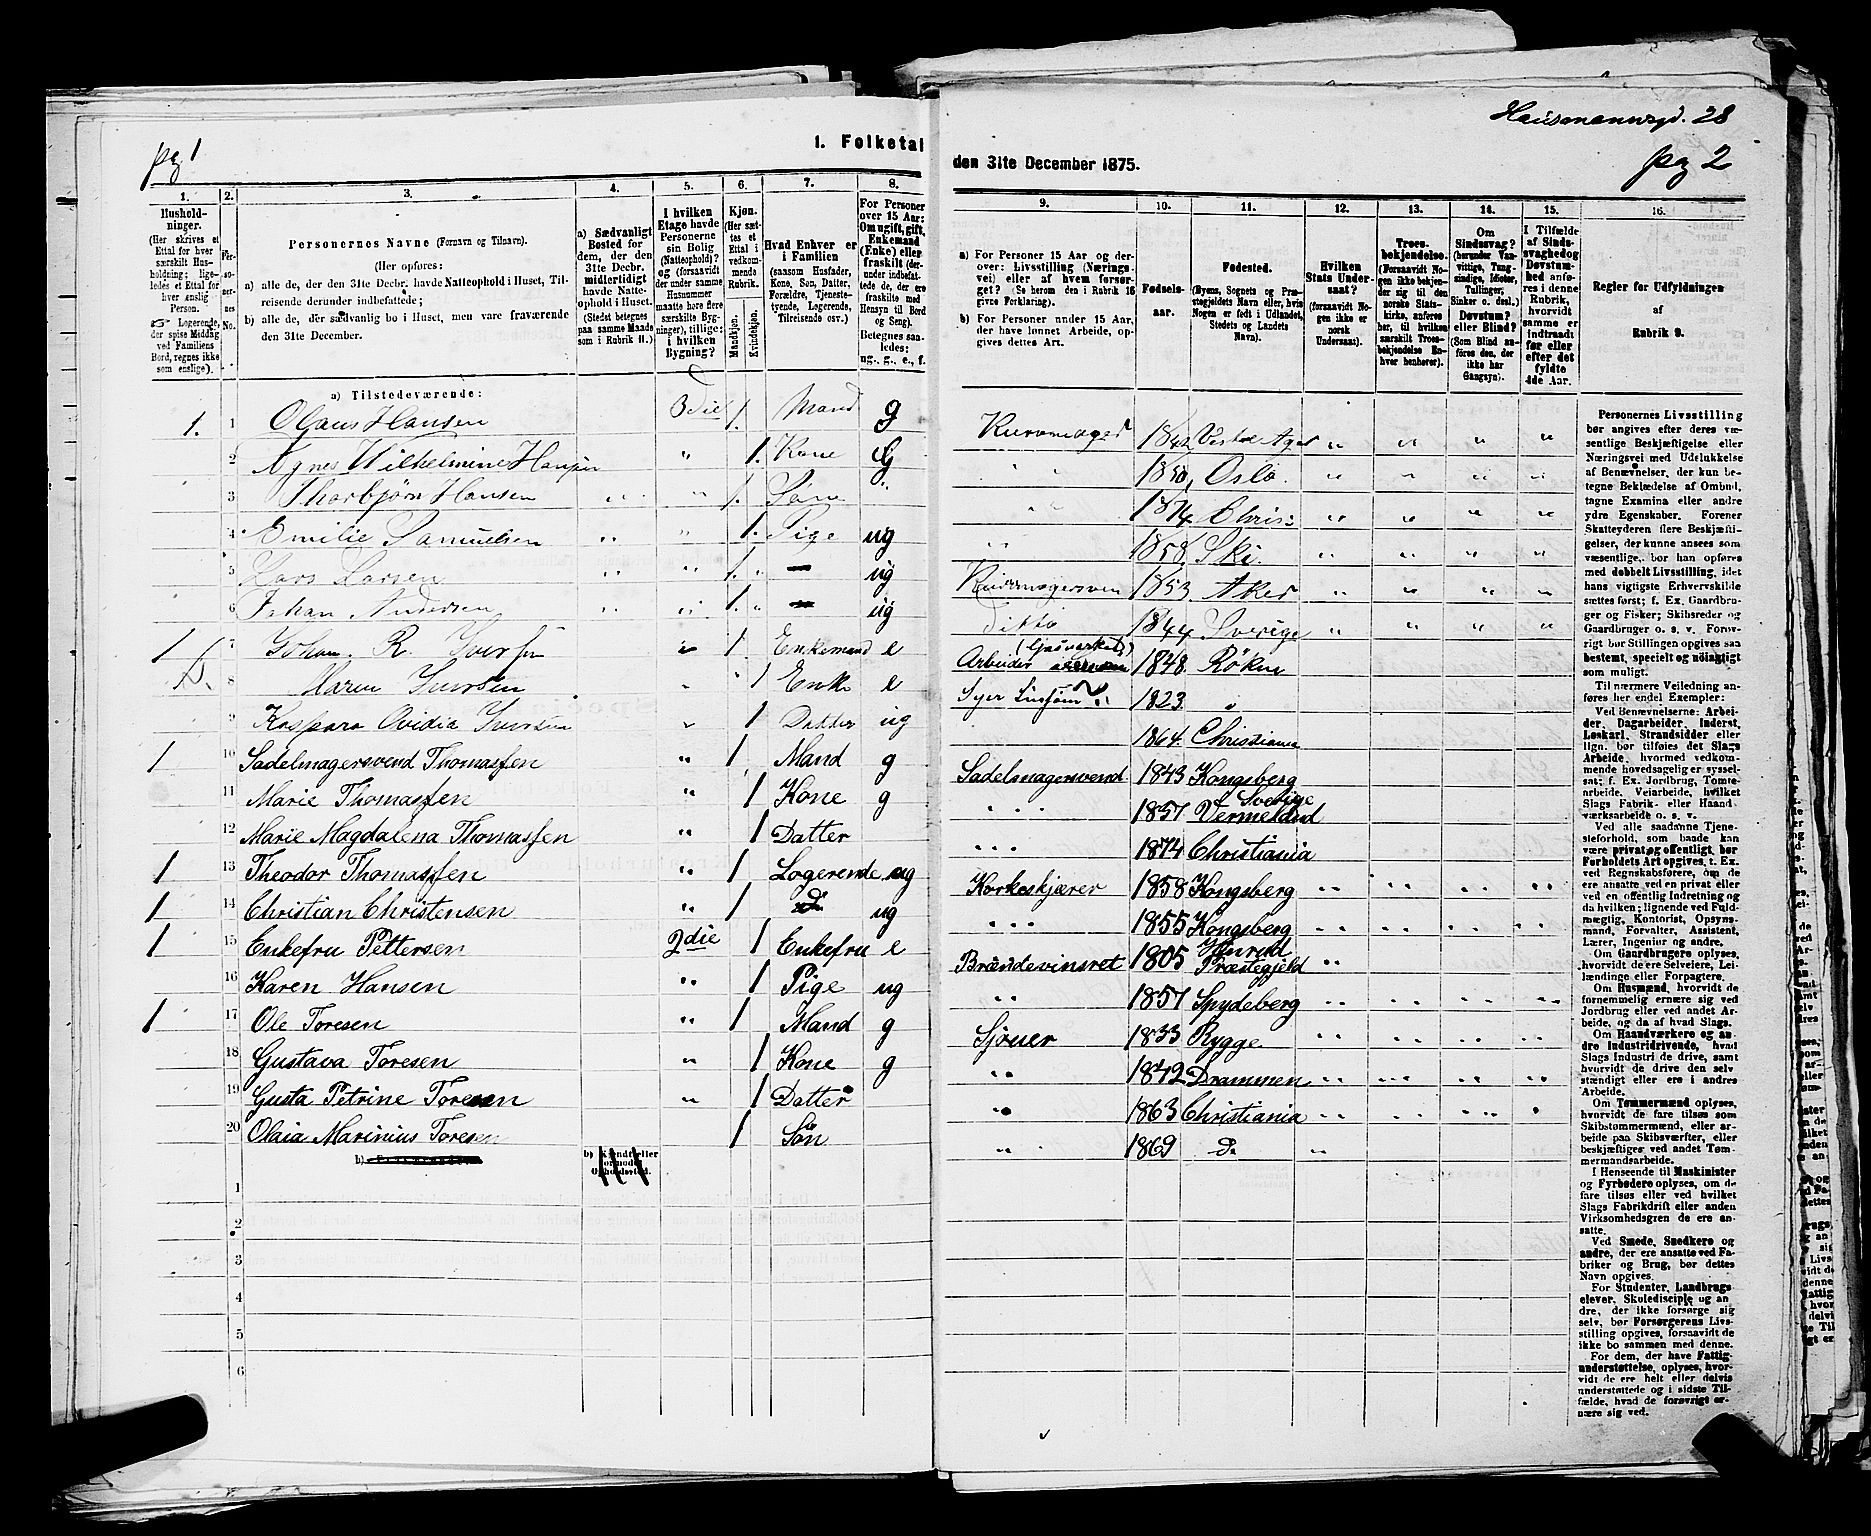 Hausmannsgd. 28
pg 1
I. Folketal
den 31te December 1875.
pg 2
1.
Hushold-
ninger.
(Her skrives et
Ettal for hver
særskilt Hus-
holdning; lige-
ledes et Ettal for
hver enslig
Person.
☞ Logerende,
der spise Middag
ved Familiens
Bord, regnes ikke
som enslige).
2.
Per-
so-
ner-
nes
No.
3.
Personernes Navne (Fornavn og Tilnavn).
(Her opføres:
a) alle de, der den 31te Decbr. havde Natteophold i Huset, Til-
reisende derunder indbefattede;
b) alle de, der sædvanlig bo i Huset, men vare fraværende
den 31te December.
4.
a) Sædvanligt
Bosted for
dem, der den
31te Decbr.
midlertidigt
havde Natte-
ophold i Huset.
(Stedet betegnes
paa samme Maade
som i Rubrik 11.)
5.
I hvilken
Etage havde
Personerne
sin Bolig
(Natteophold)?
og (forsaavidt
der under samme
Husnummer
maatte høre flere
særskilte Byg-
ninger), tillige:
i hvilken
Bygning?
6.
Kjøn.
(Her sæt-
tes et
Ettal i
vedkom-
mende
Rubrik.
Mandkjøn.
Kvindekjøn.
7.
Hvad Enhver er
i Familien
(saasom Husfader,
Kone, Søn, Datter,
Forældre, Tjeneste-
tyende, Logerende,
Tilreisende osv.)
8.
For Personer
over 15 Aar:
Om ugift, gift,
Enkemand
(Enke) eller
fraskilt (der-
under indbefat-
tede de, der ere
fraskilte med
Hensyn til Bord
og Seng).
Betegnes saa-
ledes:
ug., g., e., f.
9.
a) For Personer 15 Aar og der-
over: Livsstilling (Nærings-
vei) eller af hvem forsør-
get? (Se herom den i Rubrik 16
givne Forklaring).
b) For Personer under 15 Aar,
der have lønnet Arbeide, op-
gives dettes Art.
10.
Fødsels-
aar.
11.
Fødested.
(Byens, Sognets og Præ-
stegjeldets Navn eller, hvis
Nogen er født i Udlandet,
Stedets og Landets
Navn).
12.
Hvilken
Stats Under-
saat?
(forsaavidt No-
gen ikke er
norsk
Undersaat).
13.
Troes-
bekjendelse.
(Forsaavidt No-
gen ikke bekjen-
der sig til den
norske Stats-
kirke, anføres
her, til hvilken
særskilt Troes-
bekjendelse En-
hver henhører).
14.
Om
Sindssvag?
(herunder Van-
vittige, Tung-
sindige, Idioter,
Tullinger,
Sinker o. desl.)
Døvstum?
eller Blind?
(Som Blind an-
føres den, der
ikke har
Gangsyn).
15.
I Tilfælde
af Sinds-
svaghed og
Døvstum-
hed anfø-
res i denne
Rubrik,
hvorvidt
samme er
indtraadt
før eller
efter det
fyldte
4de Aar.
16.
Regler for Udfyldningen
af
Rubrik 9.
a) Tilstedeværende:
1. 1 Olaus Hansen 3die 1. Mand g Kurvmager 1842 Vestre Ager " " " "
2 Agnes Wilhelmine Hansen " 1. Kone G " " 1850, Oslo. " " " "
3 Thorbjørn Hansen " " 1. Søn " " " 1874. Chris: " " " "
4 Emilie Samuelsen " " 1. Pige ug " " 1858. Ski. " " " "
5 Lars Larsen " " 1. " — ug Kurvmagersven 1853. Aker " " " "
6 Johan Andersen " " 1. " — ug Ditto 1844 Sverige " " " "
1 7 Johan R. Iversen " 1 Enkemand e Arbeider (Gasverket) 1848. Røken
8 Maren Iversen " 1 Enke e Syer 1823. "
9 Kaspara Ovidia Iversen " 1 Datter ug 1864. Christiania
1 10 Sadelmagersvend Thomassen " 1 Mand g Sadelmagersvend 1843 Kongsberg
11 Marie Thomassen " 1 Kone g " " " 1857 Vermeland Sverige
12 Marie Magdalena Thomassen " 1 Datter " " " 1874 Christiania
1 13 Theodor Thomassen " 1 Logerende ug Korkeskjærer 1858 Kongsberg " " " "
1 14 Christian Christensen " 1 d ug " " " 1855 Kongsberg " " " "
1 15 Enkefru Pettersen 2die 1 Enkefru e Brændevinsret 1805 Præstegjeld "
16 Karen Hansen " 1 Pige ug " " 1857 Spydeberg " " " "
1 17 Ole Toresen " 1 Mand g Sjouer 1833 Rygge " " " "
18 Gustava Toresen " 1 Kone g " " 1842 Drammen " " " "
19 Gusta Petrine Toresen " 1 Datter " " 1863 Christiania " " " "
20 Olaia Marinius Toresen 1 Søn " " 1869 d "
1
2
3
4
5
6
Personernes Livsstilling
bør angives efter deres væ-
sentlige Beskjæftigelse eller
Næringsvei med Udelukkelse
af Benævnelser, der kun be-
tegne Beklædelse af Ombud,
tagne Examina eller andre
ydre Egenskaber. Forener
Skatteyderen flere Beskjæfti-
gelser, der kunne ansees som
væsentlige, bør han opføres
med dobbelt Livsstilling, idet
hans vigtigste Erhvervskilde
sættes først; f. Ex. Gaardbru-
ger og Fisker; Skibsreder og
Gaardbruger o. s. v. Forøv-
rigt bør Stillingen opgives saa
bestemt, specielt og nøiagtigt
som muligt.
Til nærmere Veiledning an-
føres her endel Exempler:
Ved Benævnelserne: Arbei-
der, Dagarbeider, Inderst,
Løskarl, Strandsidder eller
lign. bør tilføies det Slags
Arbeide, hvormed vedkom-
mende hovedsagelig er syssel-
sat; f. Ex. Jordbrug, Tømte-
arbeide, Veiarbeide, hvilket
Slags Fabrik- eller Haand-
værksarbeide o. s. v.
Ved alle saadanne Tjene-
steforhold, som baade kan
være privat og offentligt, bør
Forholdets Art opgives, t. Ex.
ved Regnskabsførere, om de
ere ansatte ved en privat eller
ved en offentlig Indretning og
da hvilken; lignende ved Fuld-
mægtig, Kontorist, Opsyns-
mand, Forvalter, Assistent,
Lærer, Ingeniør og andre.
Om Gaardbrugere oplyses,
hvorvidt de ere Selveiere, Lei-
lændinge eller Forpagtere.
Om Husmænd, hvorvidt de
fornemmelig ernære sig ved
Jordbrug eller ved andet Ar-
beide, og da af hvad Slags.
Om Haandværkere og an-
dre Industridrivende, hvad
Slags Industri de drive, samt
hvorvidt de drive den selv-
stændigt eller ere i andres
Arbeide.
Om Tømmermænd oplyses,
hvorvidt de fare tilsøs som
Skibstømmermænd, eller ar-
beide paa Skibsværfter, eller
beskjæftiges ved andet Tøm-
mermandsarbeide.
I Henseende til Maskinister
og Fyrbødere oplyses, om de
fare tilsøs eller ved hvilket
Slags Fabrikdrift eller anden
Virksomhedsgren de ere an-
satte.
Ved Smede, Snedkere og
andre, der ere ansatte ved Fa-
briker og Brug, bør dettes
Navn opgives.
For Studenter, Landbrugs-
elever, Skoledisciple og an-
dre, der ikke forsørge sig
selv, bør Forsørgerens Livs-
stilling opgives, forsaavidt de
ikke bo sammen med denne.
For dem, der have Fattig-
understøttelse, oplyses, hvor-
vidt de ere helt eller delvis
understøttede og i sidste Til-
fælde, hvad de forøvrigt er-
nære sig ved.